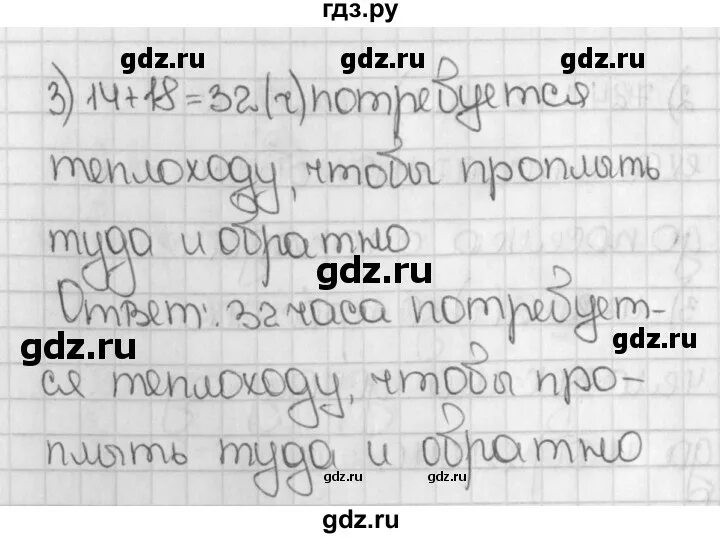 гдз.ру
gdz.ru gdz.ru
3) 14+18=32(ч) потребуется
теплоходу, чтобы проплыть
gdz.ru gdz.ru
туда и обратно
gdz.ru
Ответ: 32 часа потребует-
gdz.ru gdz.ru
ся теплоходу, чтобы про-
плыть туда и обратно
gdz.ru gdz.ru
gdz.ru